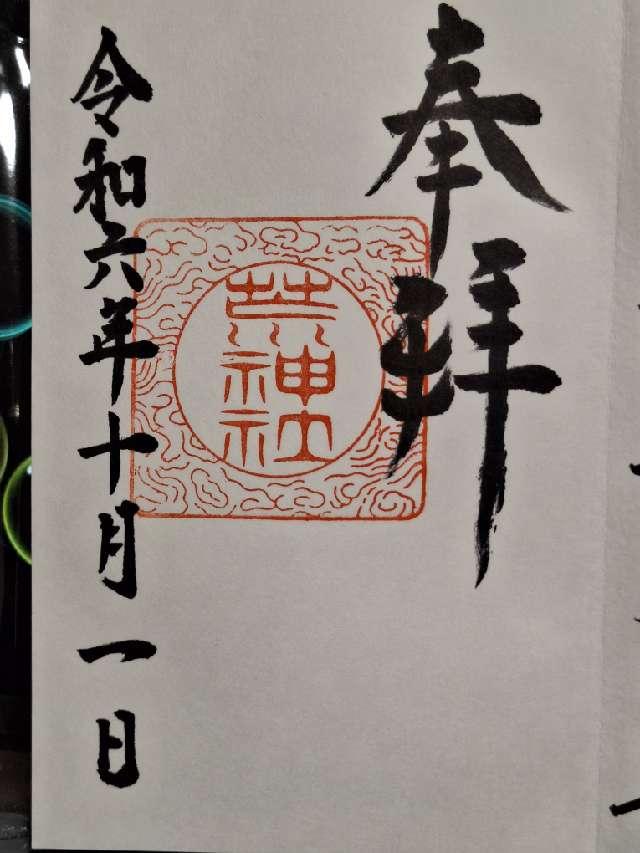 奉拝
神社
令和六年十月一日